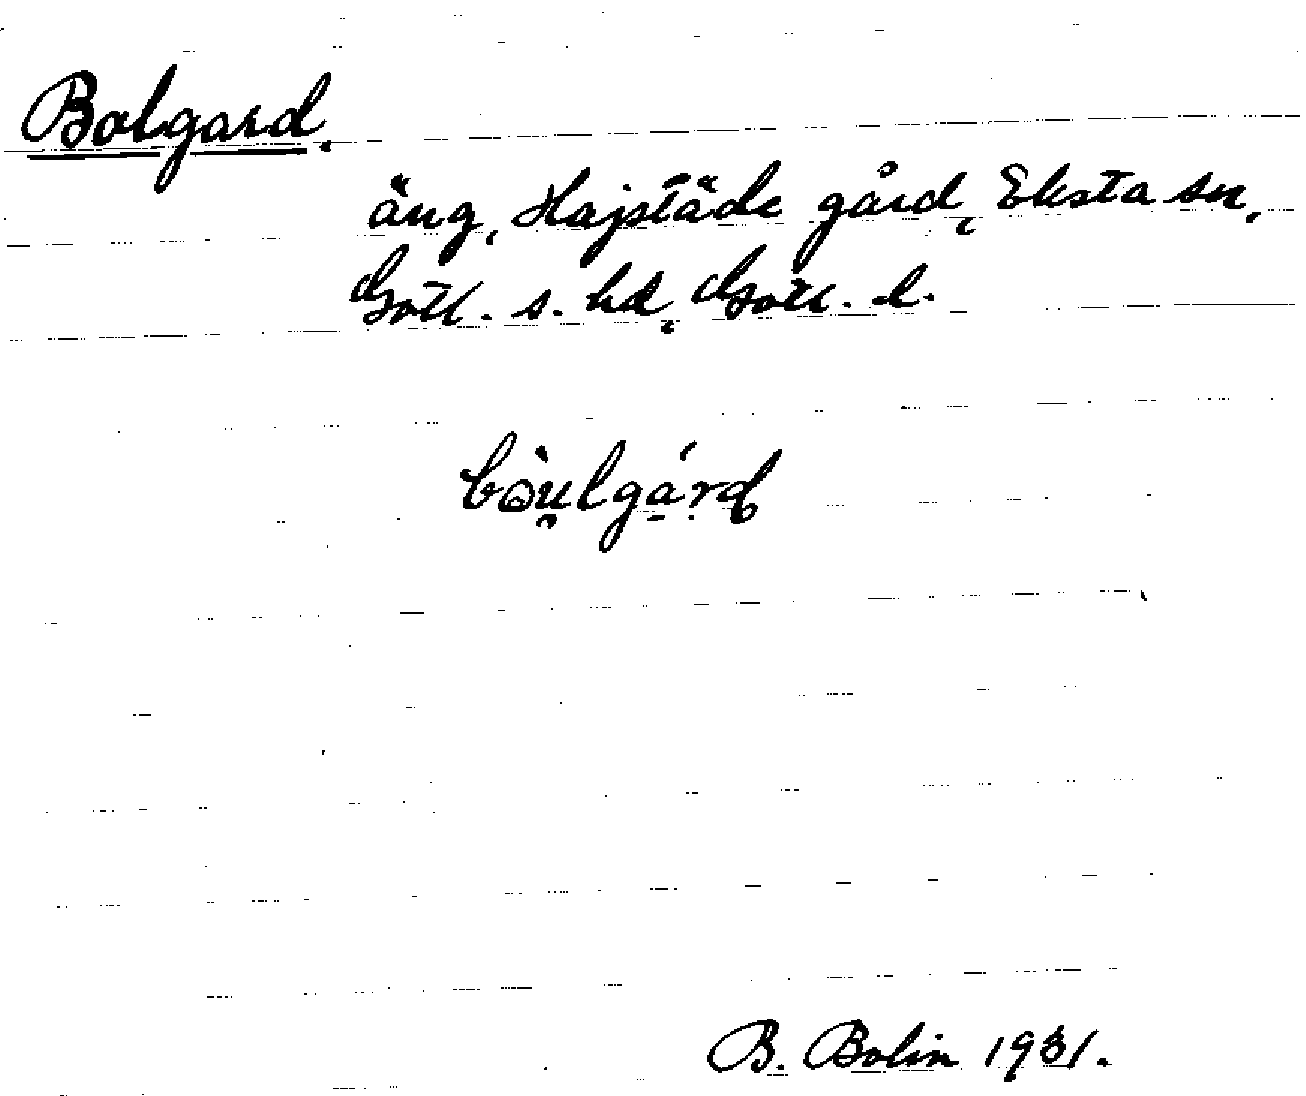 Bolgard.
äng, Hajstäde gård, Eksta sn,
Gotl. s. hd, Gotl. l.
bòu̯lgárd
B. Bolin 1931.